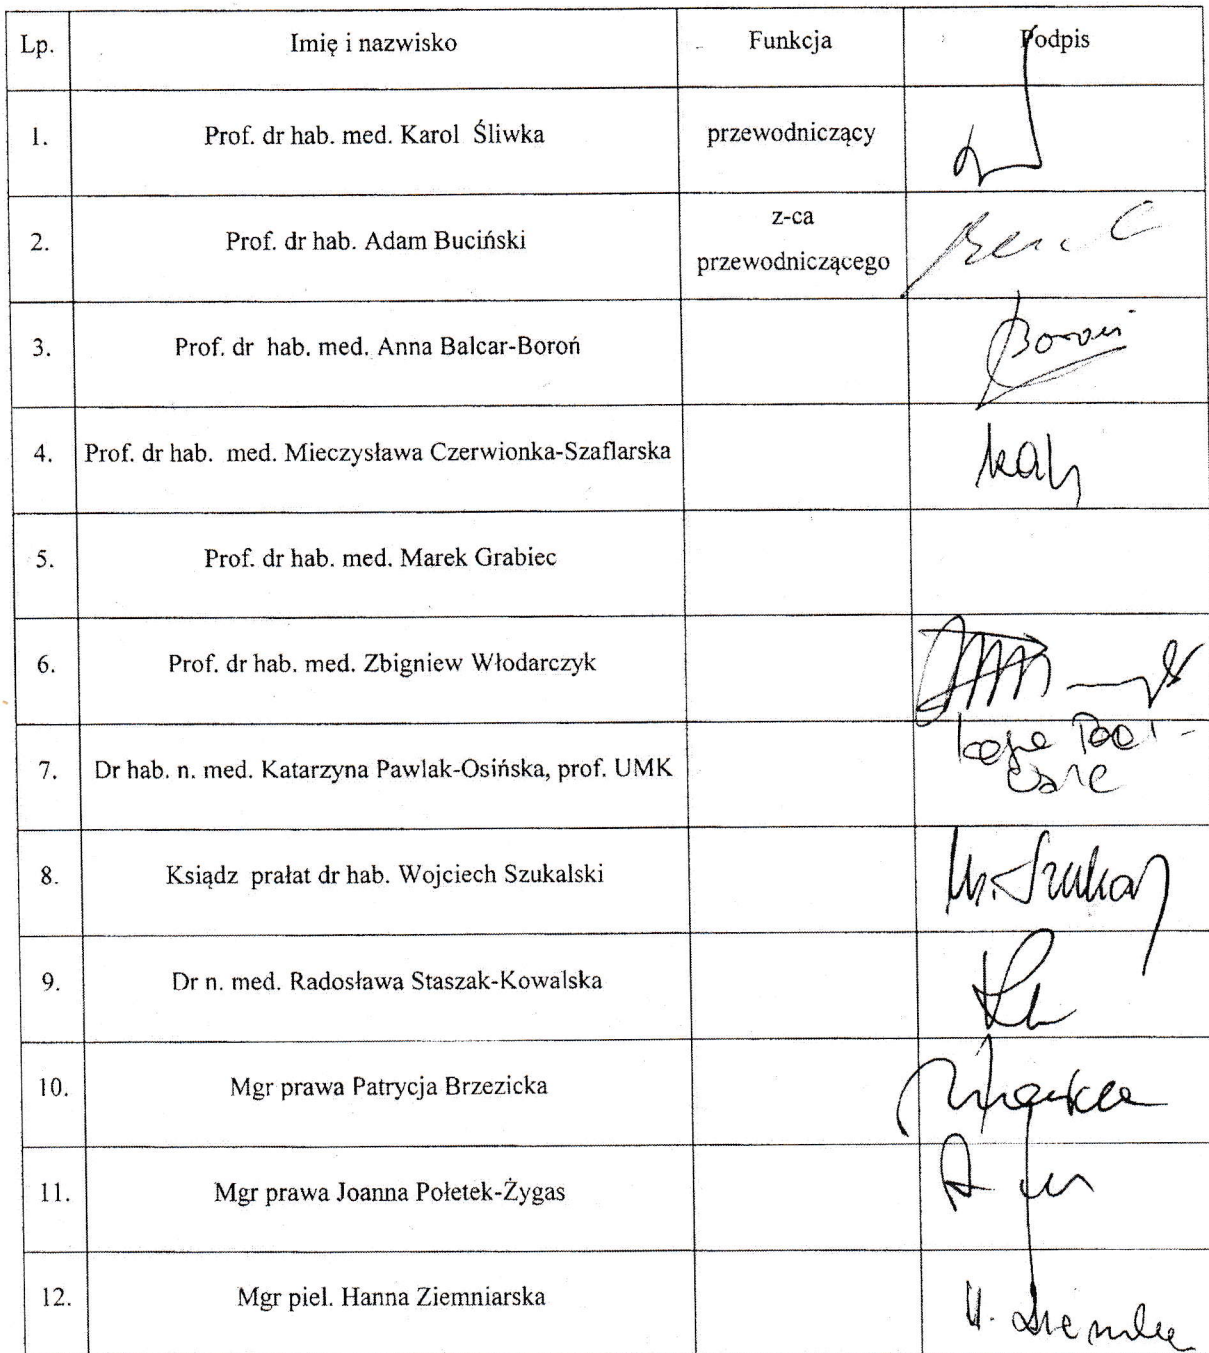 Lp. Imię i nazwisko Funkcja Podpis
1. Prof. dr hab. med. Karol Śliwka przewodniczący
2. Prof. dr hab. Adam Buciński z-ca
przewodniczącego
3. Prof. dr hab. med. Anna Balcar-Boroń Boroń
4. Prof. dr hab. med. Mieczysława Czerwionka-Szaflarska
5. Prof. dr hab. med. Marek Grabiec
6. Prof. dr hab. med. Zbigniew Włodarczyk
7. Dr hab. n. med. Katarzyna Pawlak-Osińska, prof. UMK
8. Ksiądz prałat dr hab. Wojciech Szukalski
9. Dr n. med. Radosława Staszak-Kowalska
10. Mgr prawa Patrycja Brzezicka
11. Mgr prawa Joanna Połetek-Żygas
12. Mgr piel. Hanna Ziemniarska